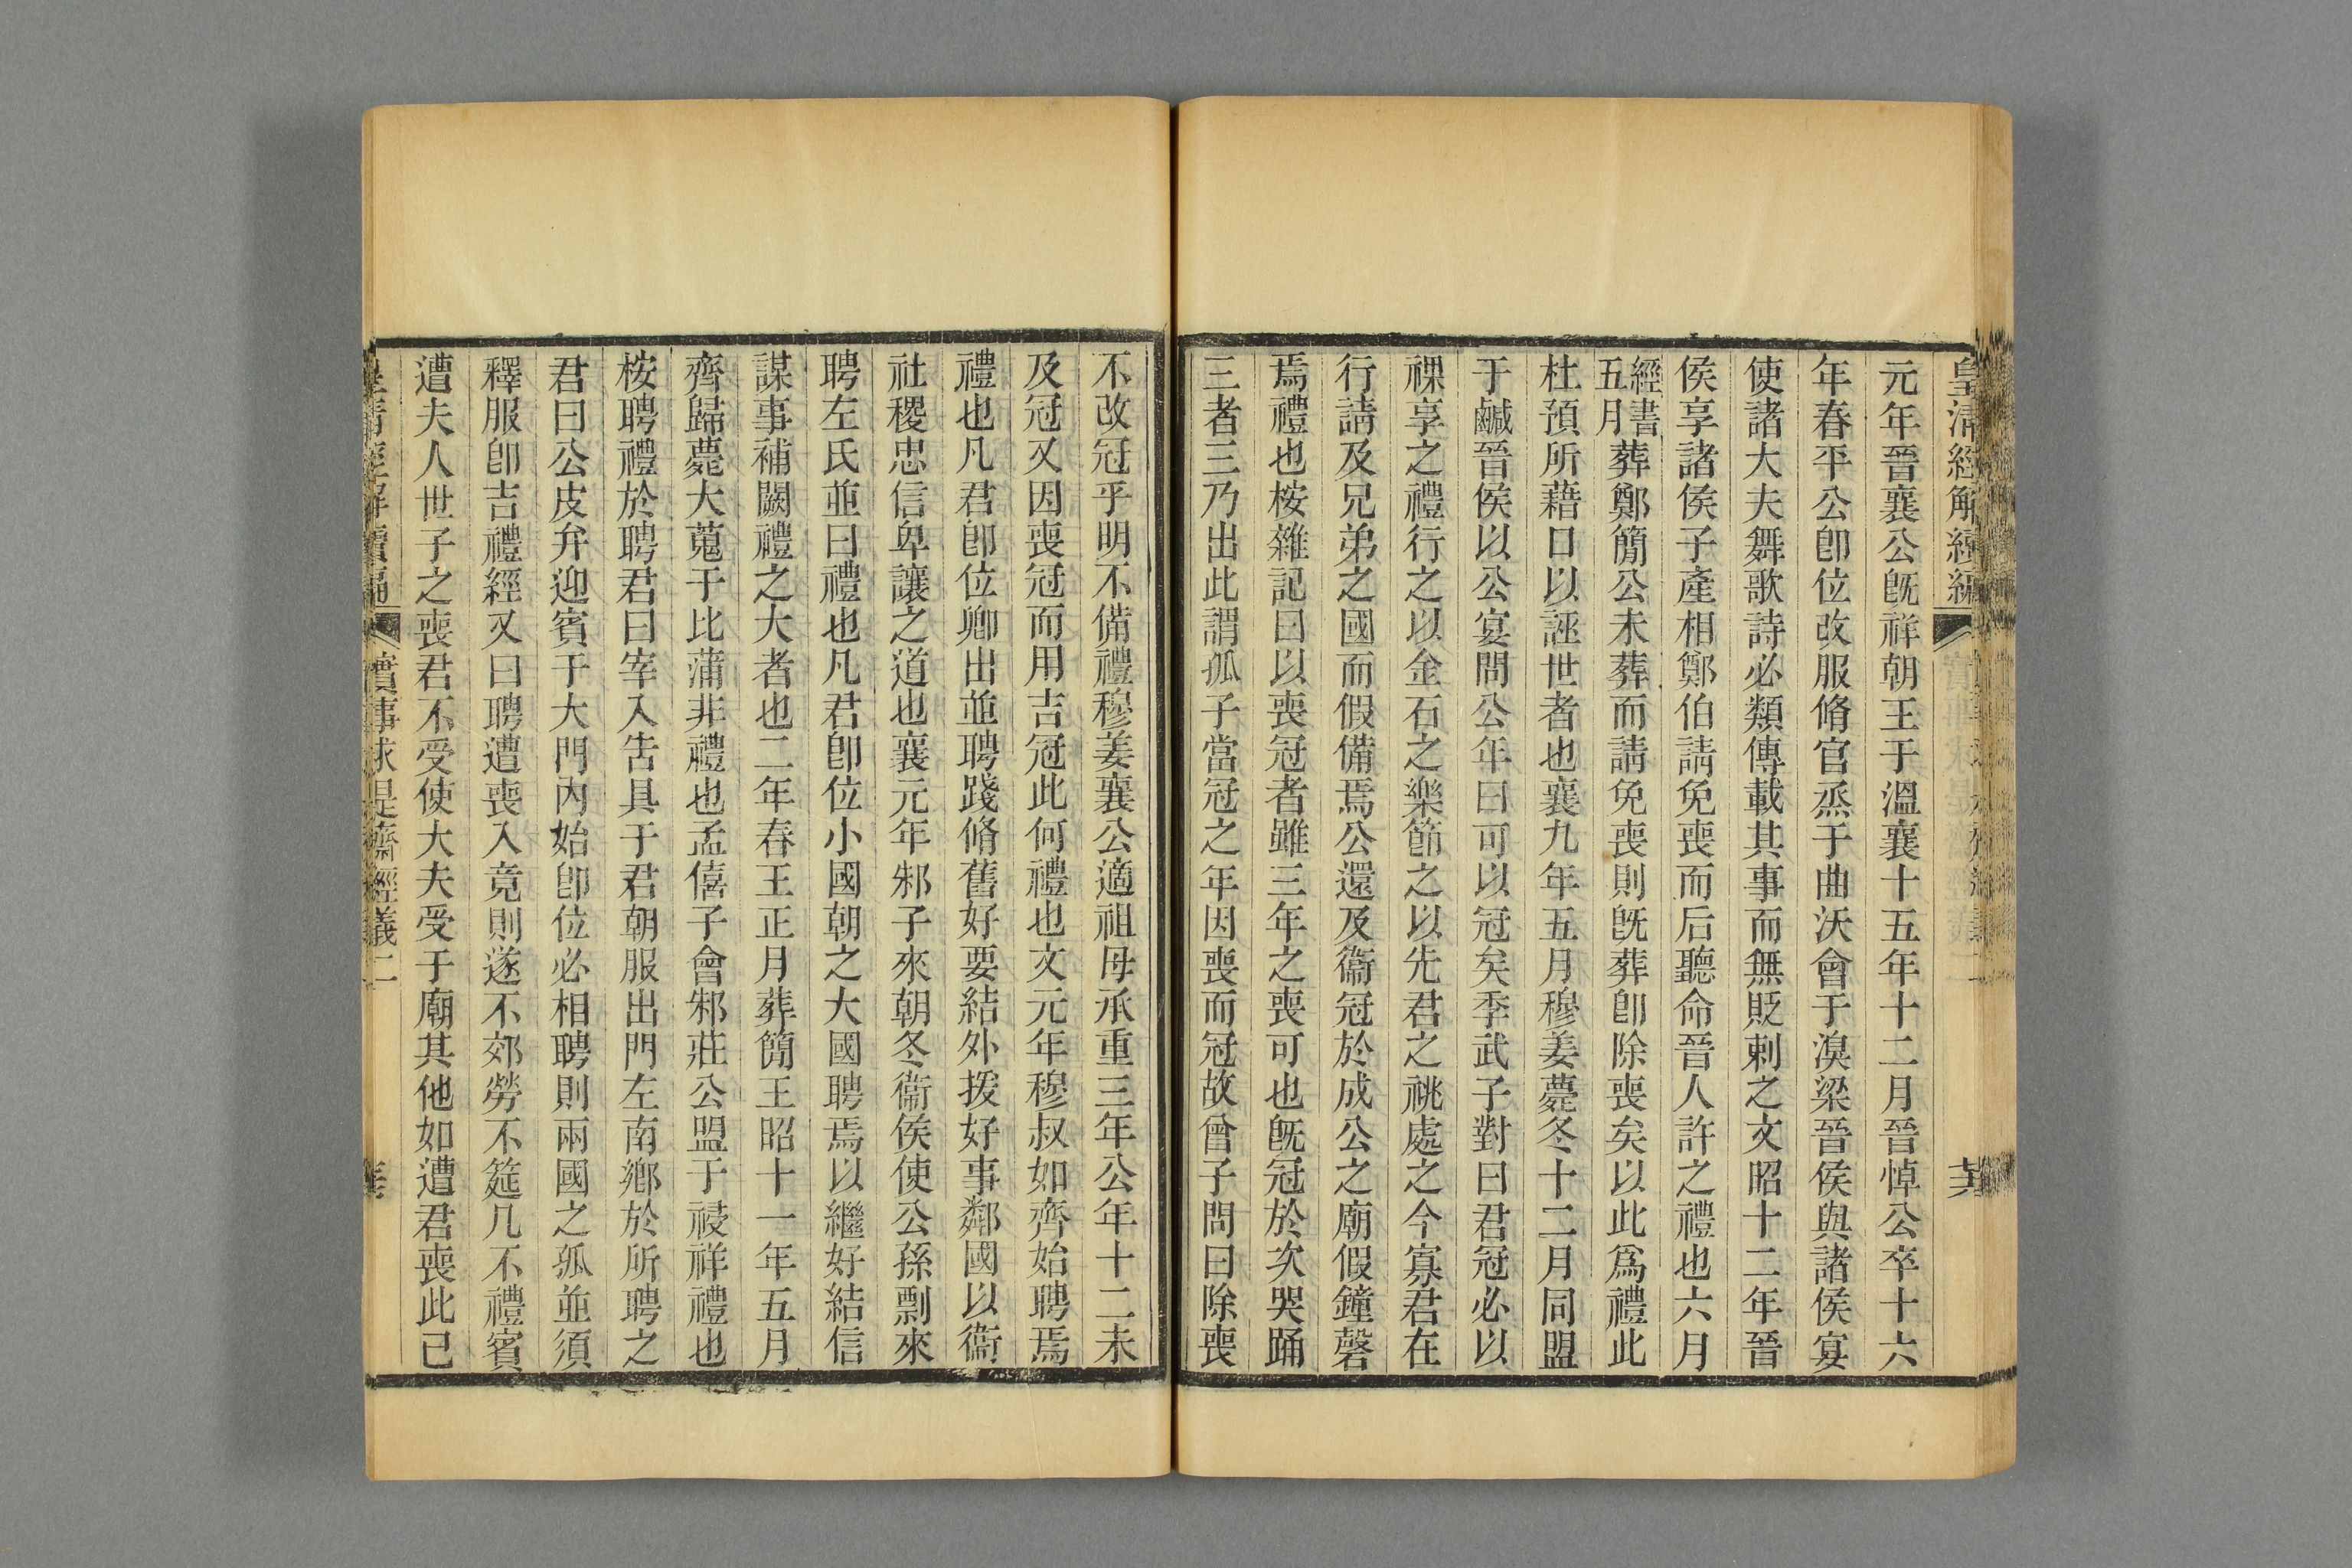 皇清經解續編
元年晉襄公旣祥朝王于溫襄十五年十二月晉悼公卒十六
年春平公卽位改服脩官烝于曲沃會于湨梁晉侯與諸侯宴
使諸大夫舞歌詩必類傳載其事而無貶刺之文昭十二年晉
侯享諸侯子產相鄭伯請免喪而后聽命晉人許之禮也六月
經書五月葬鄭簡公未葬而請免喪則旣葬卽除喪矣以此爲禮此
杜預所藉口以誣世者也襄九年五月穆姜薨冬十二月同盟
于鹹晉侯以公宴問公年曰可以冠矣季武子對曰君冠必以
祼享之禮行之以金石之樂節之以先君之祧處之今寡君在
行請及兄弟之國而假備焉公還及衞冠於成公之廟假鐘磬
焉禮也桉雜記曰以喪冠者雖三年之喪可也旣冠於次哭踊
三者三乃出此謂孤子當冠之年因喪而冠故曾子問曰除喪
不改冠乎明不備禮穆姜襄公適祖母承重三年公年十二未
及冠又因喪冠而用吉冠此何禮也文元年穆叔如齊始聘焉
禮也凡君卽位卿出並聘踐脩舊好要結外援好事鄰國以衞
社稷忠信卑讓之道也襄元年邾子來朝冬衞侯使公孫剽來
聘左氏並曰禮也凡君卽位小國朝之大國聘焉以繼好結信
謀事補闕禮之大者也二年春王正月葬簡王昭十一年五月
齊歸薨大蒐于比蒲非禮也孟僖子會邾莊公盟于祲祥禮也
桉聘禮於聘君曰宰入告具于君朝服出門左南鄉於所聘之
君曰公皮弁迎賓于大門內始卽位必相聘則兩國之孤並須
釋服卽吉禮經又曰聘遭喪入竟則遂不郊勞不筵几不禮賓
遭夫人世子之喪君不受使大夫受于廟其他如遭君喪此已
皇清經解續編 實事求是齋經義二